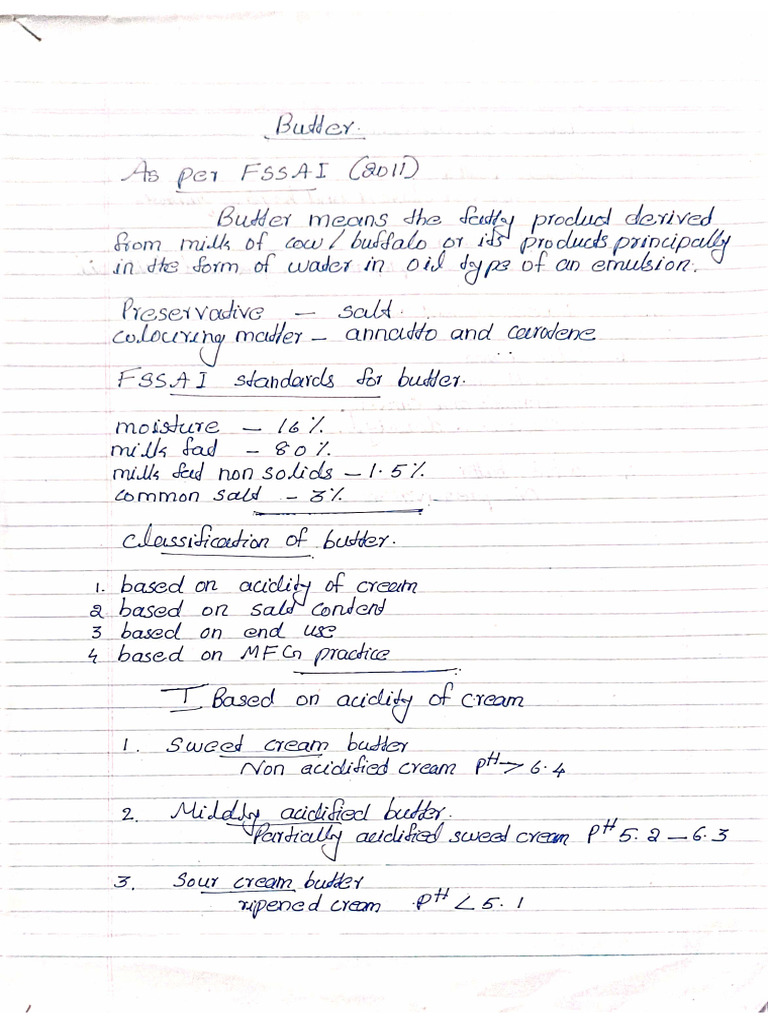 Butter.
As per FSSAI (2011)
Butter means the fatty product derived
from milk of cow / buffalo or its products principally
in the form of water in oil type of an emulsion.
Preservative – salt.
colouring matter – annatto and carotene
FSSAI standards for butter.
moisture – 16 %
milk fat – 80 %
milk fat non solids – 1.5 %
common salt – 3 %
classification of butter.
1. based on acidity of cream
2 based on salt content
3 based on end use
4 based on MFG practice
I Based on acidity of cream
1. Sweet cream butter
Non acidified cream pH > 6.4
2. Mildly acidified butter.
Partially acidified sweet cream pH 5.2 – 6.3
3. Sour cream butter
ripened cream pH < 5.1